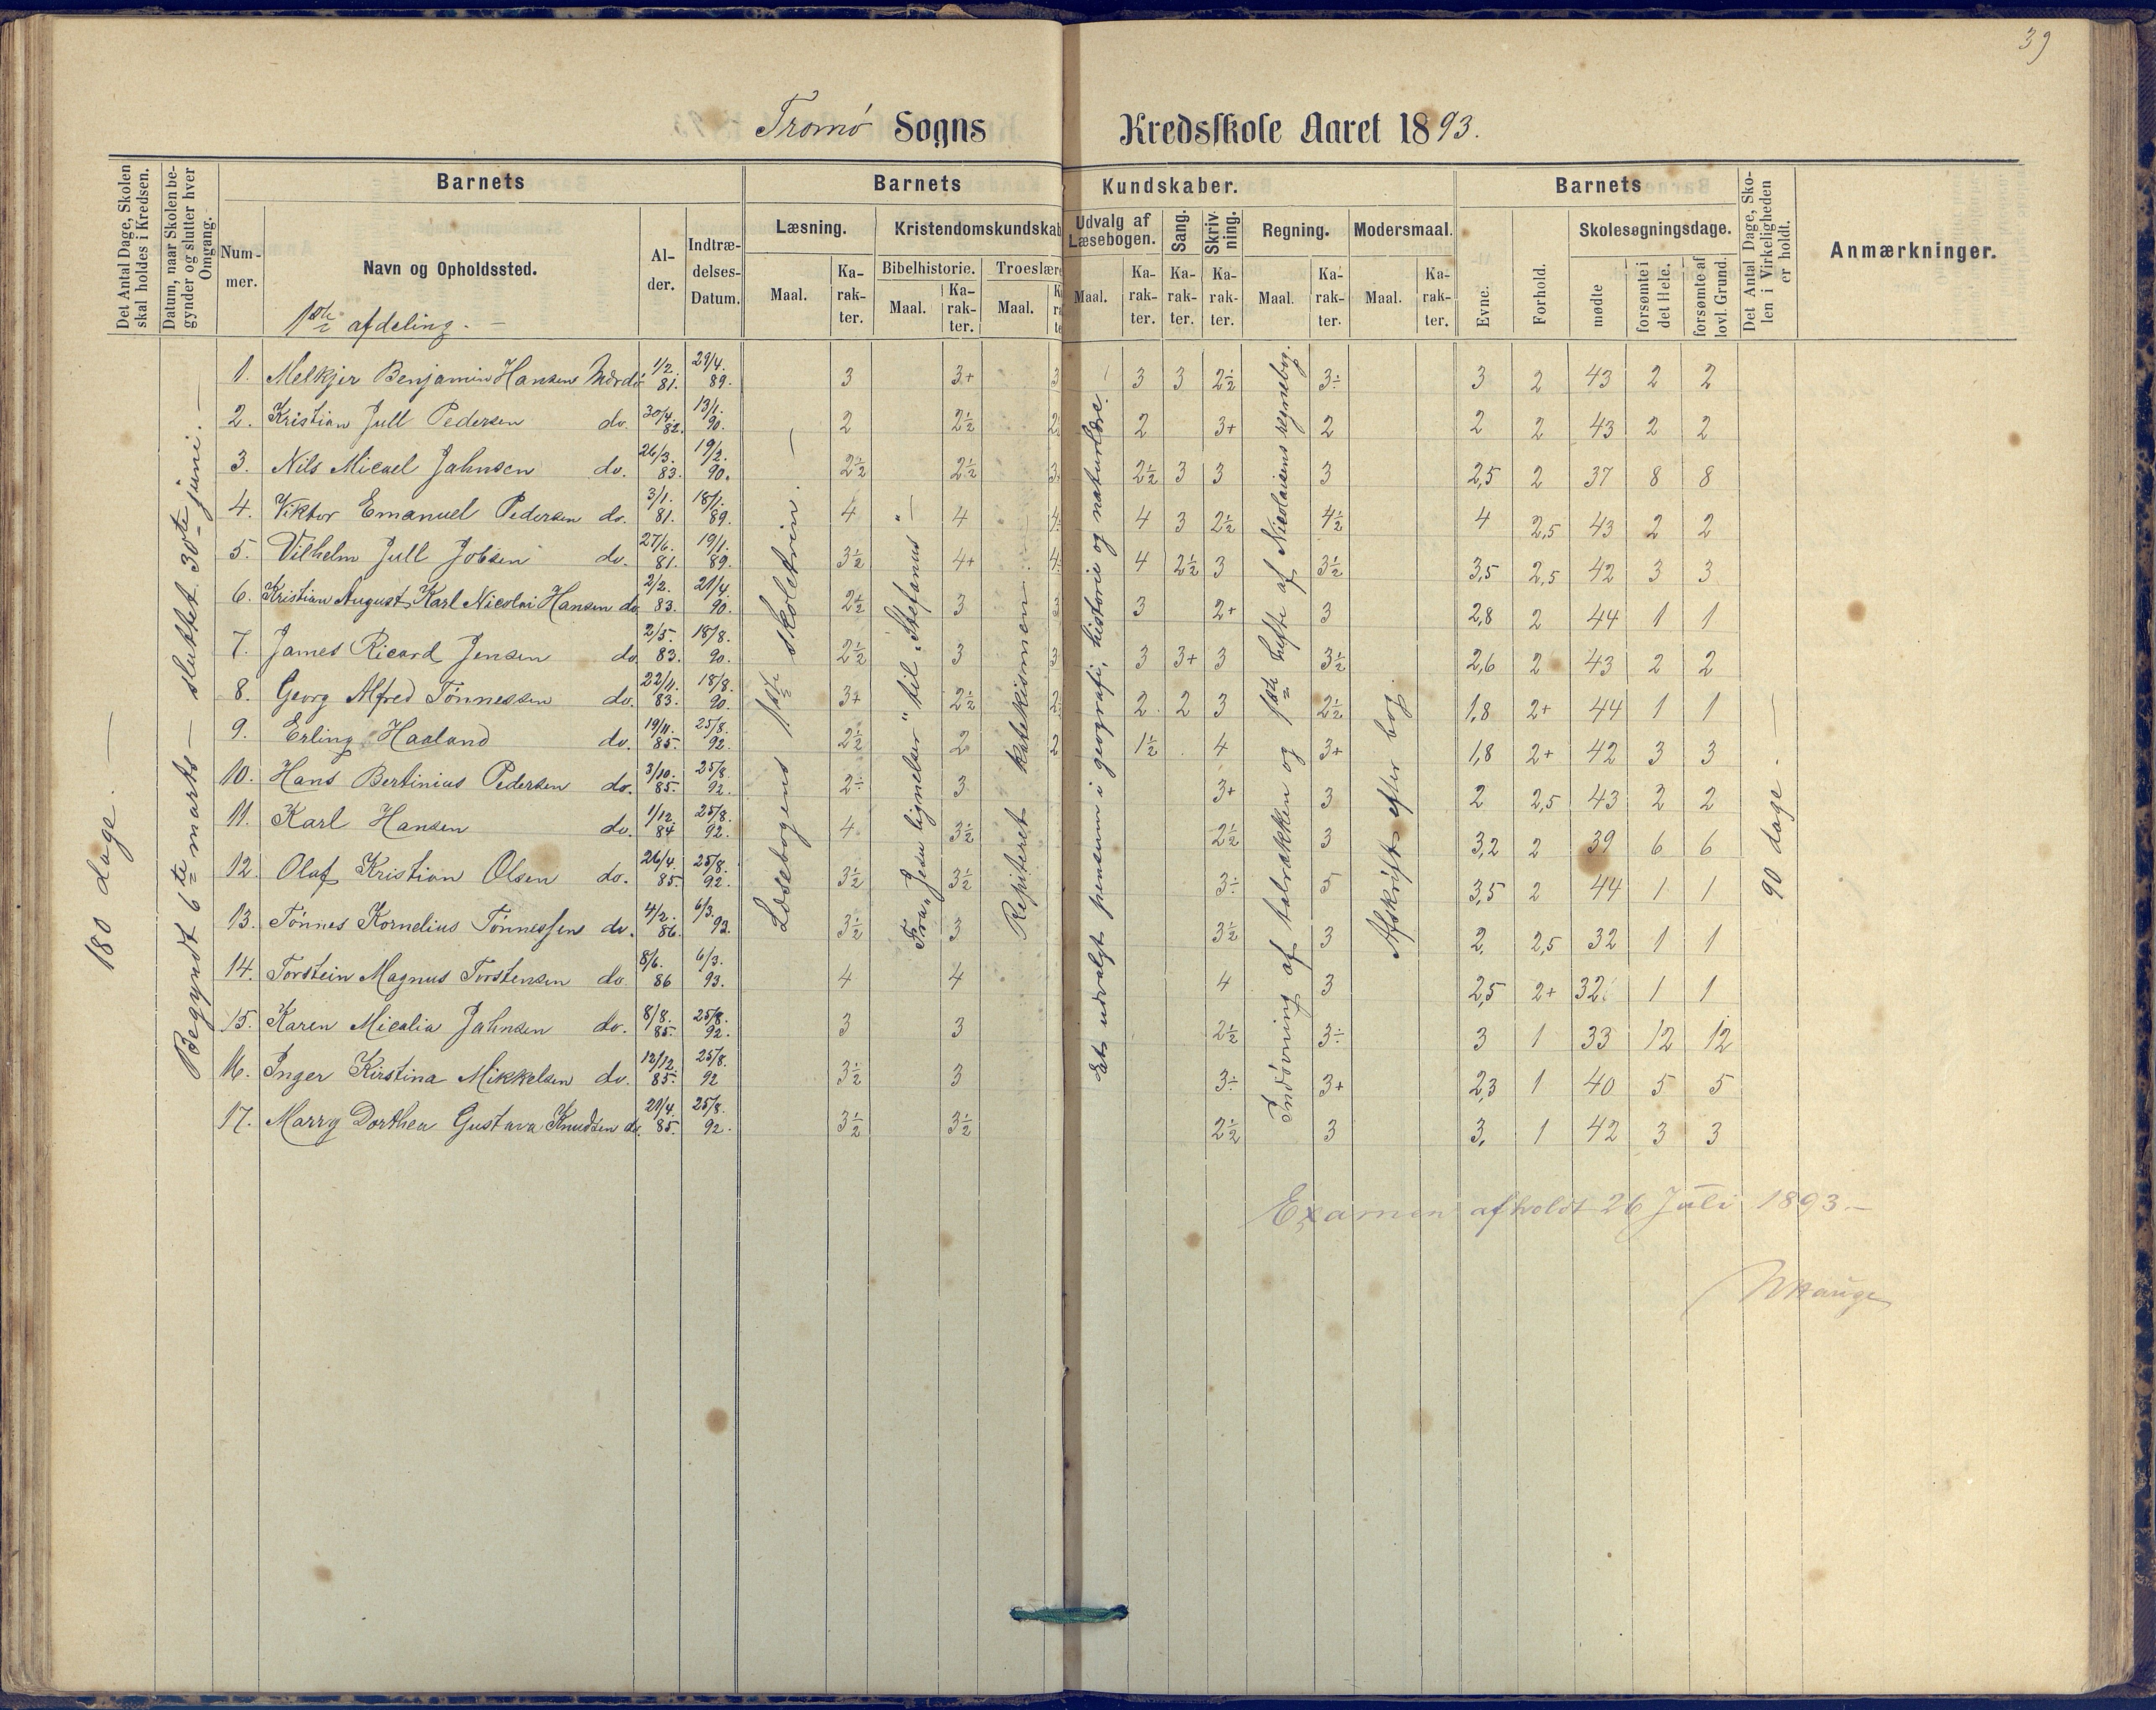 39
Tromø Sogns Kredsskole Aaret 1893.
Det Antal Dage, Skolen skal holdes i Kredsen.
Datum, naar Skolen begynder og slutter hver Omgang.
Barnets
Nummer.
Navn og Opholdssted.
Alder.
Indtrædelses-Datum.
Barnets Kundskaber.
Læsning.
Maal. Karakter.
Kristendomskundskab
Bibelhistorie.
Maal. Karakter.
Troeslære
Maal.
Udvalg af Læsebogen.
Maal. Karakter.
Sang.
Karakter.
Skrivning.
Karakter.
Regning.
Maal. Karakter.
Modersmaal.
Maal. Karakter.
Barnets
Evne.
Forhold.
Skolesøgningsdage.
mødte
forsømte i det Hele.
forsømte af lovl. Grund.
Det Antal Dage, Skolen i Virkeligheden er holdt.
Anmærkninger.
1ste afdeling. —
180 dage. —
Begyndt 6te marts — sluttet 30te juni. —
Læsebogens 1ste skoletrin. —
Fra „Jesu lignelser“ til „Stefanus“ —
Repiteret katekismen
Et udvalgt pensum i geografi, historie og naturlære.
Indøvning af talrækken og 1ste hefte af Nicolaisens regnebog.
Afskrift efter bog.
90 dage. —
1. Melkjer Benjamin Hansen Mærdø 1/2. 81. 29/4. 89. 3 3+ 3 3 3 2½ 3÷ 3 2 43 2 2
2. Kristian Jull Pedersen do. 30/4. 82. 13/1. 90. 2 2½ 2 3+ 2 2 2 43 2 2
3. Nils Micael Jahnsen do. 26/3. 83. 19/2. 90. 2½ 2½ 3 2½ 3 3 3 2,5 2 37 8 8
4. Viktor Emanuel Pedersen do. 3/1. 81. 18/1. 89. 4 4 4 4 3 2½ 4½ 4 2,5 43 2 2
5. Vilhelm Jull Jobsen do. 27/6. 81. 19/1. 89. 3½ 4+ 4 4 2½ 3 3½ 3,5 2,5 42 3 3
6. Kristian August Karl Nicolai Hansen do 2/2. 83. 21/4. 90. 2½ 3 3 3 2+ 3 2,8 2 44 1 1
7. James Ricard Jensen do. 2/5. 83. 18/8. 90. 2½ 3 3 3 3+ 3 3½ 2,6 2 43 2 2
8. Georg Alfred Tønnessen do. 22/11. 83. 18/8. 90. 3+ 2½ 2 2 3 2½ 1,8 2+ 44 1 1
9. Erling Haaland do. 19/11. 85. 25/8. 92. 2½ 2 2 1½ 4 3+ 1,8 2+ 42 3 3
10. Hans Bertinius Pedersen do. 3/10. 85. 25/8. 92. 2÷ 3 3+ 3 2 2,5 43 2 2
11. Karl Hansen do. 1/12. 84 25/8. 92. 4 3½ 2½ 3 3,2 2 39 6 6
12. Olaf Kristian Olsen do. 26/4. 85. 25/8. 92. 3½ 3½ 3÷ 5 3,5 2 44 1 1
13. Tønnes Kornelius Tønnessen do. 4/2. 86. 6/3. 93. 3½ 3 3½ 3 2, 2,5 32 1 1
14. Torstein Magnus Torstensen do. 8/6. 86 6/3. 93. 4 4 4 3 2,5 2+ 32 1 1
15. Karen Micalia Jahnsen do. 8/8. 85. 25/8. 92. 3 3 2½ 3÷ 3 1 33 12 12
16. Inger Kirstina Mikkelsen do. 12/12. 85. 25/8. 92 3½ 3 3÷ 3+ 2,3 1 40 5 5
17. Marry Dorthea Gustava Knudsen do. 29/4. 85. 25/8. 92. 3½ 3½ 2½ 3 3, 1 42 3 3
Examen afholdt 26 Juli 1893. —
Hauge